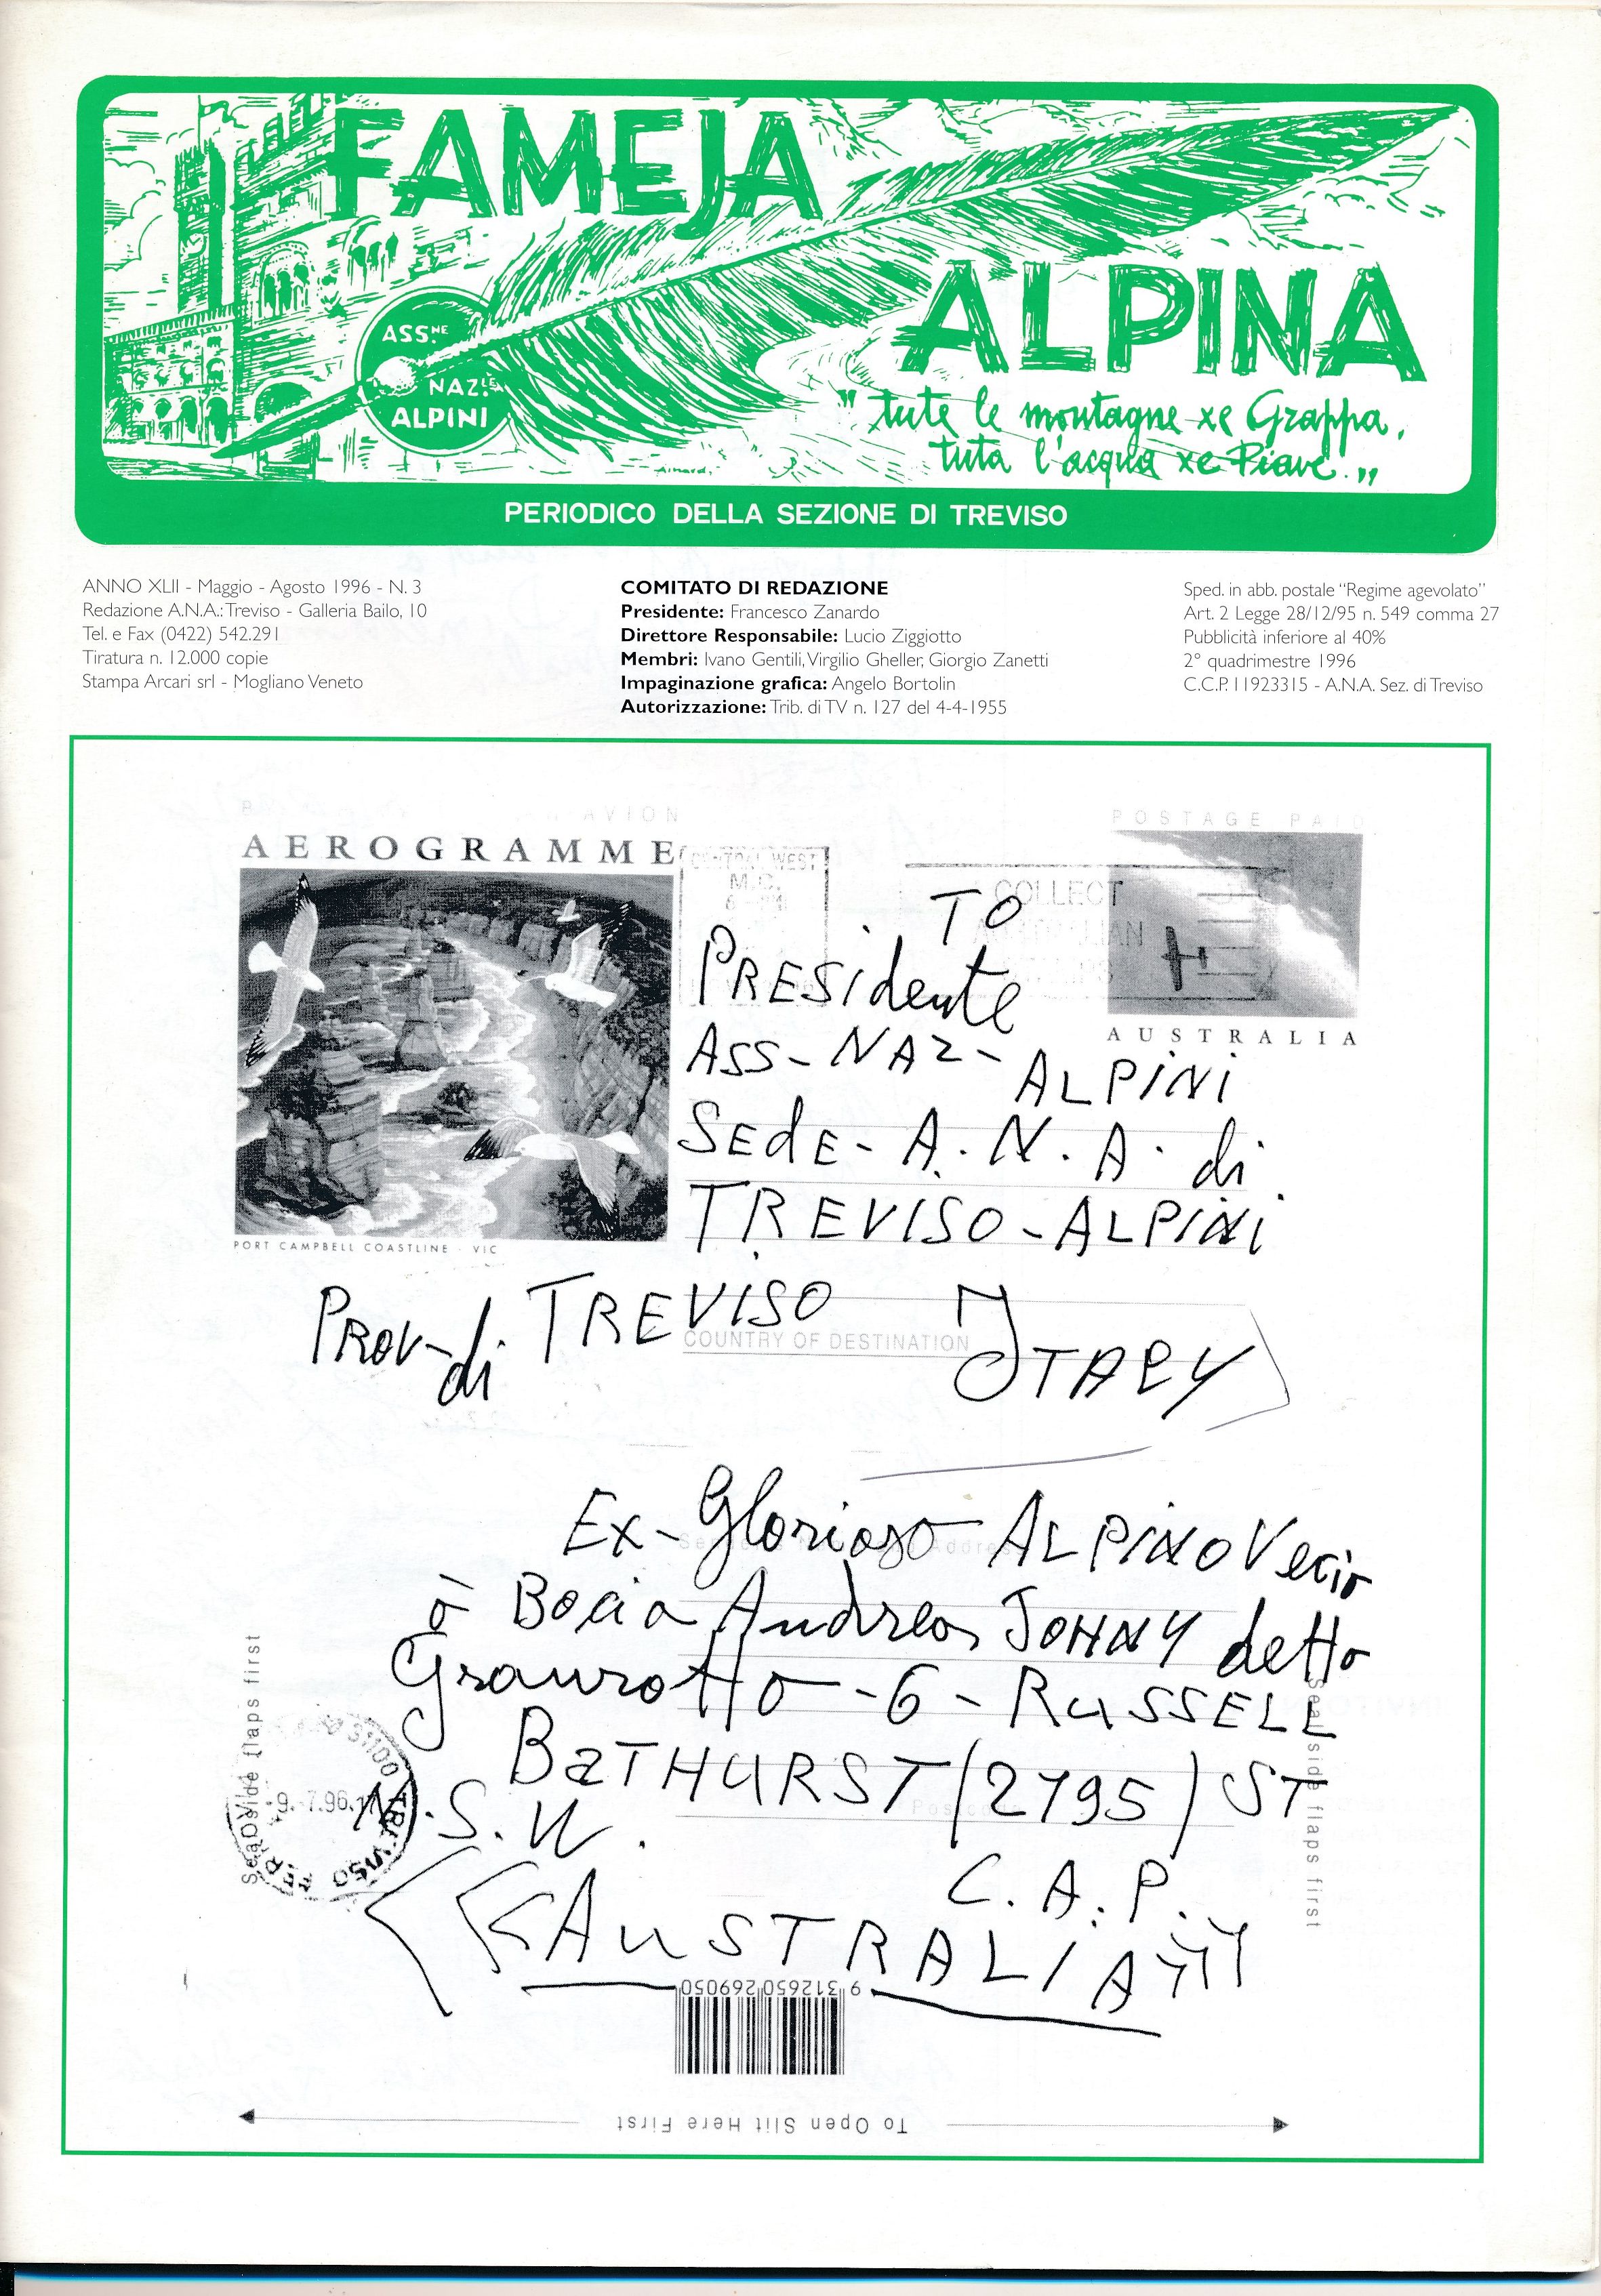 FAMEJA
ALPINA
ASS.NE
NAZ.LE
ALPINI
"tute le montagne xe Grappa,
tuta l'acqua xe Piave.„
PERIODICO DELLA SEZIONE DI TREVISO
ANNO XLII - Maggio - Agosto 1996 - N. 3
Redazione A.N.A.: Treviso - Galleria Bailo, 10
Tel. e Fax (0422) 542.291
Tiratura n. 12.000 copie
Stampa Arcari srl - Mogliano Veneto
COMITATO DI REDAZIONE
Presidente: Francesco Zanardo
Direttore Responsabile: Lucio Ziggiotto
Membri: Ivano Gentili, Virgilio Gheller, Giorgio Zanetti
Impaginazione grafica: Angelo Bortolin
Autorizzazione: Trib. di TV n. 127 del 4-4-1955
Sped. in abb. postale "Regime agevolato"
Art. 2 Legge 28/12/95 n. 549 comma 27
Pubblicità inferiore al 40%
2° quadrimestre 1996
C.C.P. 11923315 - A.N.A. Sez. di Treviso
AVION
AEROGRAMME
POSTAGE PAID
CENTRAL WEST
M.C.
COLLECT
AUSTRALIA
PORT CAMPBELL COASTLINE · VIC
TO
PRESidente
ASS - NAZ - ALPiNi
SEdE - A. N. A. di
TREVISO - ALPiNi
PROV - di TREVISO ITALY
COUNTRY OF DESTINATION
Ex - Glorioso ALPiNO Vecio
o Bocia Andrea JOHNY detto
- 6 - RUSSELL
BaTHURST (2795) ST
N.S.W.
C.A.P.
AUSTRALIA
Seal side flaps first
Seal side flaps first
9.-7.96
TREVISO
9 312650 269050
To Open Slit Here First